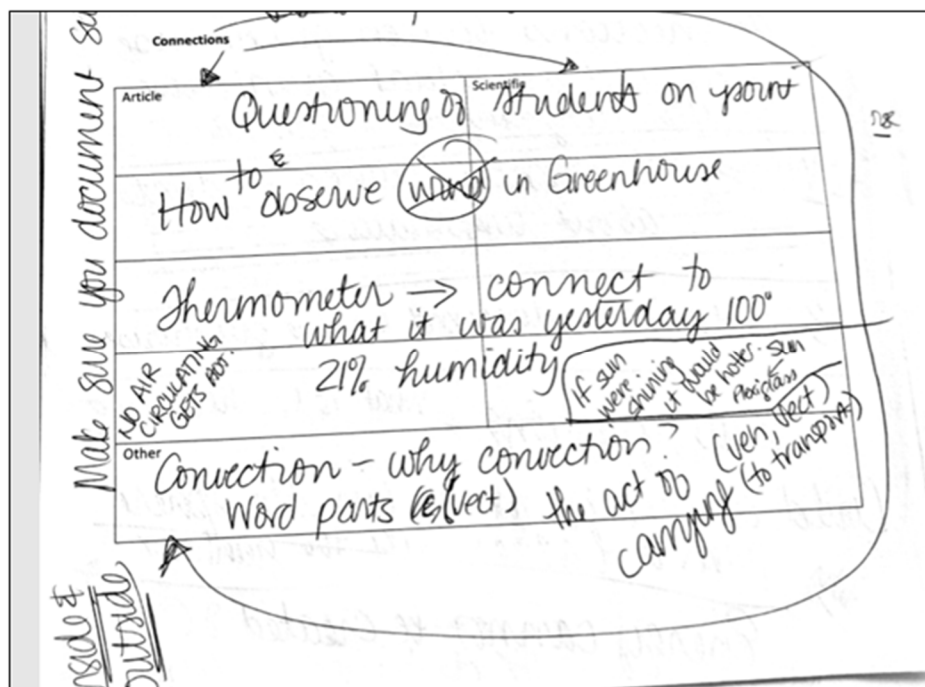 Make sure you document
Connections
Article
Scientific
Questioning of students on point
How to observe wind in Greenhouse
Thermometer → connect to
what it was yesterday 100°
21% humidity
NO AIR
CIRCULATING
GETS HOT.
If sun
were
shining
it would
be hotter - sun
plexiglass
Other
Convection - why convection?
Word parts (vect) the act of
carrying
(veh, vect)
(to transport)
inside &
outside